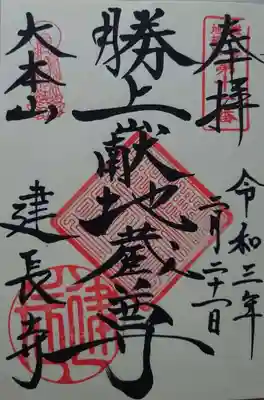 奉拝
令和三年
二月二十一日
勝上献地蔵尊
大本山
建長寺